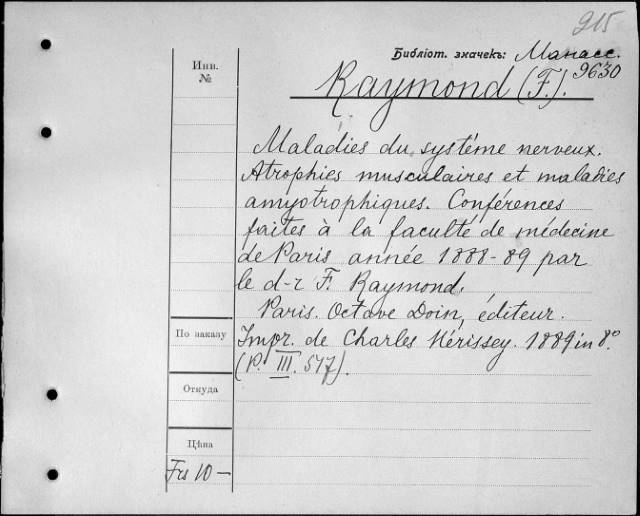 215
Библіот. значекъ: Манасс.
9630
Инв.
№
Raymond (F.).
Maladies du système nerveux.
Atrophies musculaires et maladies
amyotrophiques. Conférences
faites à la faculté de médecine
de Paris année 1888-89 par
le d-r F. Raymond.
Paris. Octave Doin, éditeur.
Impr. de Charles Hérissey. 1889 in 8°.
(P. III. 547).
По заказу
Откуда
Цѣна
Frs 10 —